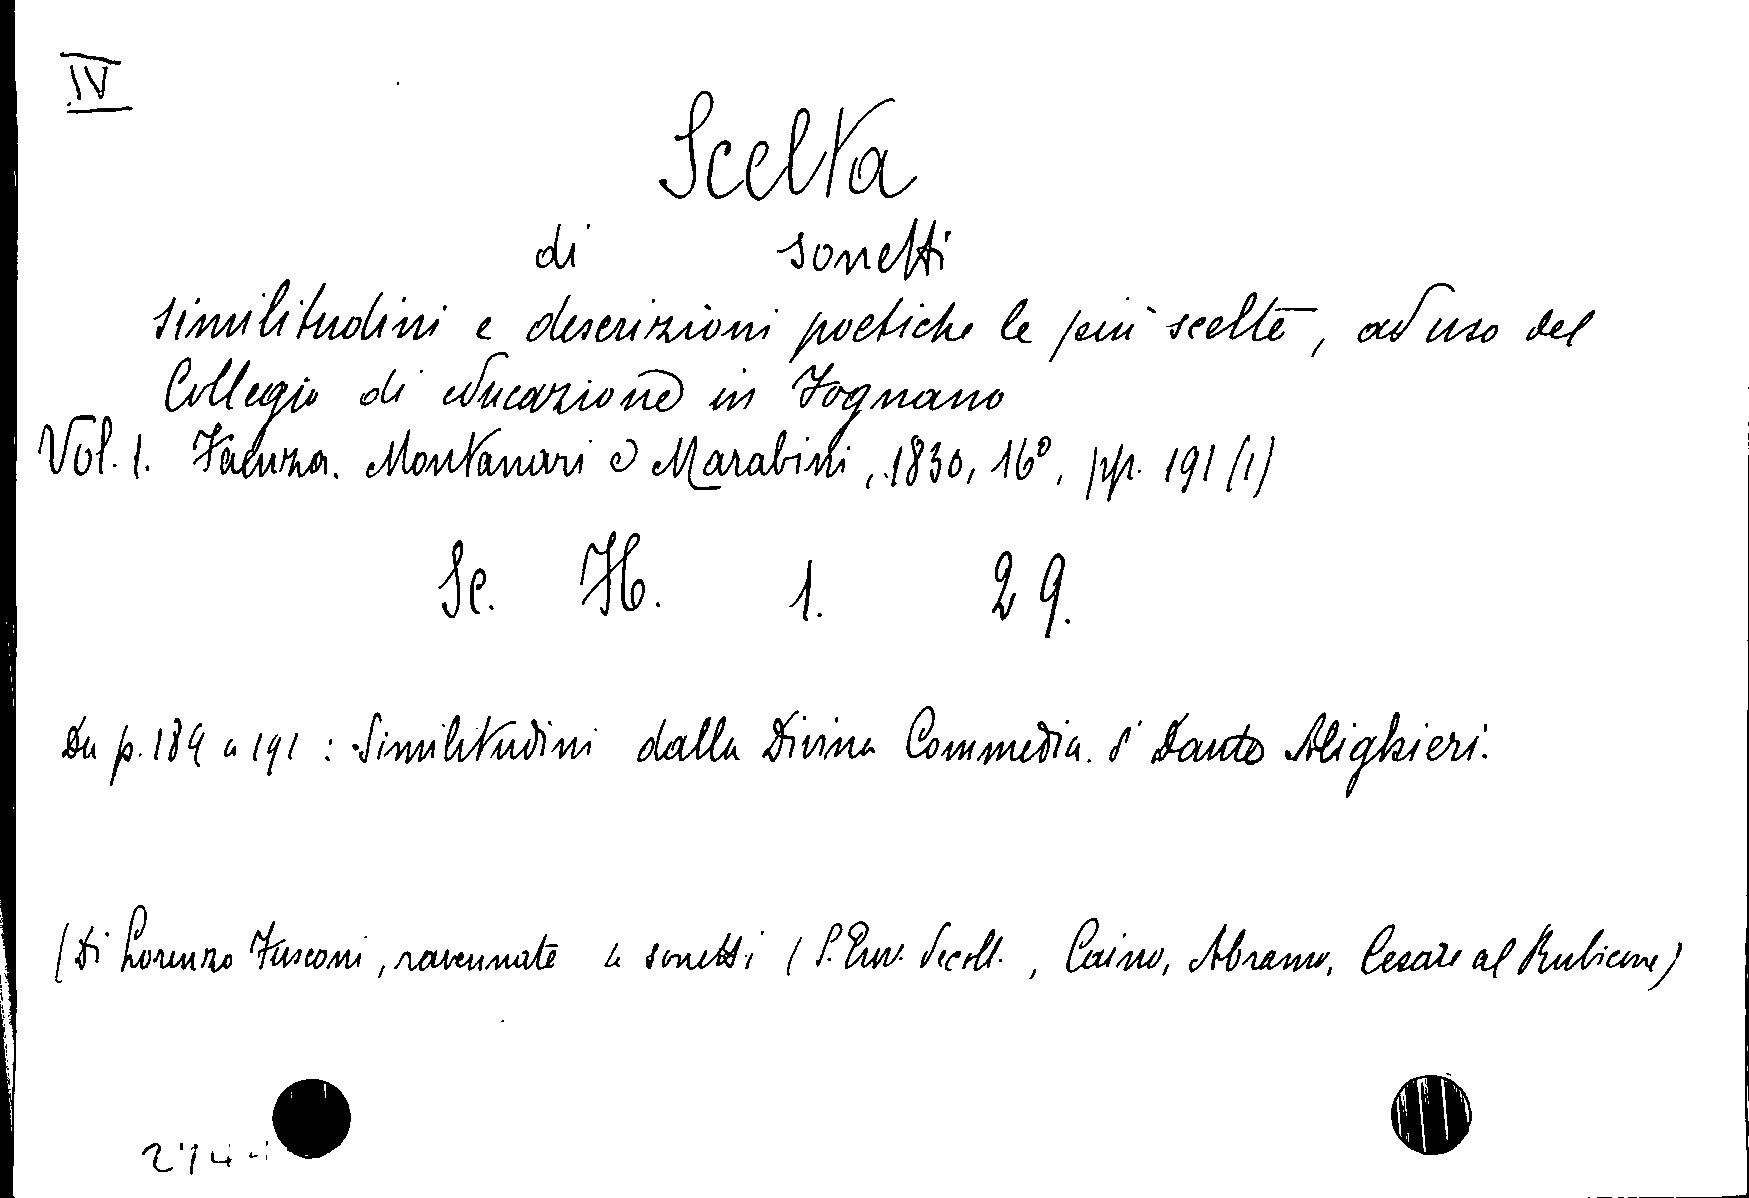 IV
Scelta
di sonetti
similitudini e descrizioni poetiche le più scelte, ad uso del
Collegio di educazione in Fognano
Vol. 1. Faenza. Montanari e Marabini, 1830, 16°, pp. 191 (1)
Sc. H. 1. 29.
Da p. 189 a 191 : Similitudini dalla Divina Commedia d' Dante Alighieri.
(Di Lorenzo Fusconi, ravennate 4 sonetti ( S. Decoll. , Caino, Abramo, Cesare al Rubicone)